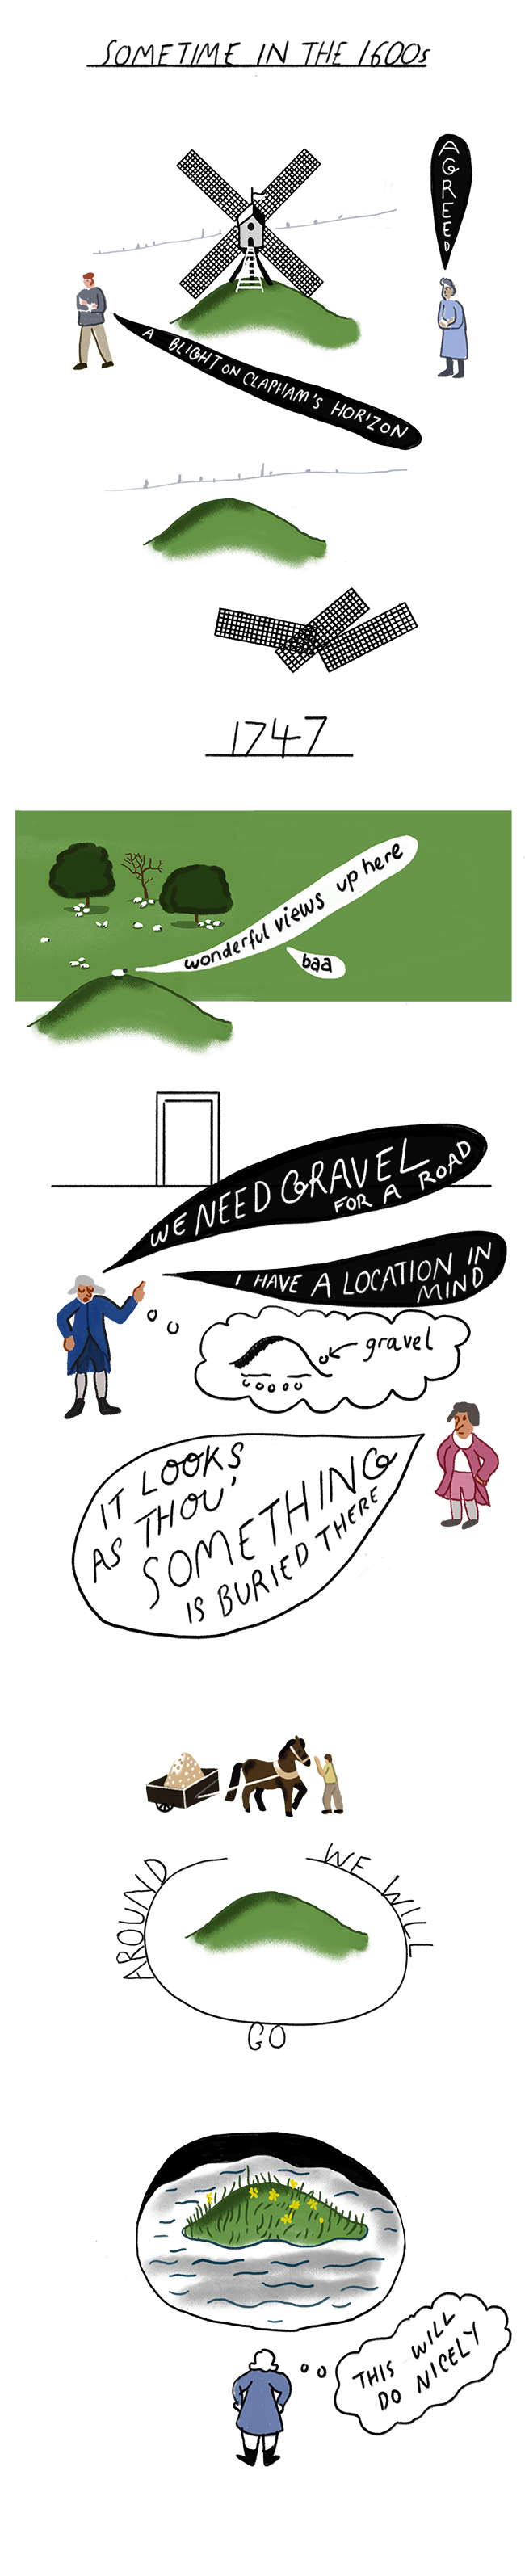 SOMETIME IN THE 1600s
AGREED
A BLIGHT ON CLAPHAM'S HORIZON
1747
wonderful views up here
baa
WE NEED GRAVEL
FOR A ROAD
I HAVE A LOCATION IN
MIND
gravel
IT LOOKS
AS THOU'
SOMETHING
IS BURIED THERE
AROUND
WE WILL
GO
THIS WILL
DO NICELY